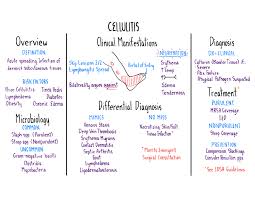 CELLULITIS
Overview
DEFINITION
Acute spreading infection of
dermis & subcutaneous tissues
RISK FACTORS
Prior Cellulitis
Tinea Pedis
Lymphedema
Diabetes
Obesity
Chronic Edema
Microbiology
COMMON
Staph spp. (Purulent)
Strep spp. (Nonpurulent)
UNCOMMON
Gram-negative bacilli
Clostridia
Mycobacteria
Clinical Manifestations
Skip Lesions
Lymphangitic Spread
Portal of Entry
Bilaterality argues against!
INFLAMMATION
Erythema
↑ Temp
Edema
Tenderness
Differential Diagnosis
MIMICS
Venous Stasis
Deep Vein Thrombosis
Erythema Migrans
Contact Dermatitis
Septic Arthritis
Lymphedema
Lipodermatosclerosis
NO MISS
Necrotizing Skin/Soft
Tissue Infection*
*Merits Emergent
Surgical Consultation
Diagnosis
DX = CLINICAL
Severe Dz
Abx Failure
Atypical Pathogen Suspected
Treatment
PURULENT
MRSA Coverage
I&D
NONPURULENT
Strep Coverage
PREVENTION
Compression Stockings
Consider Penicillin ppx
*See IDSA Guidelines